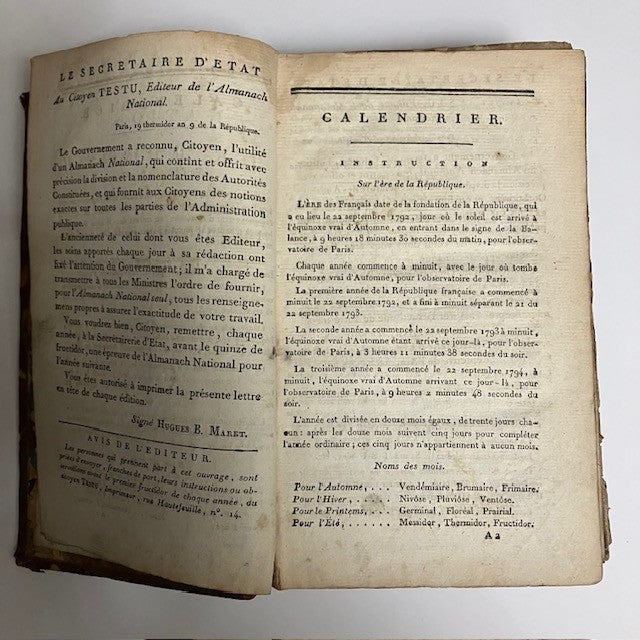 LE SECRETAIRE D'ETAT
Au Citoyen TESTU, Editeur de l'Almanach
National.
Paris, 19 thermidor an 9 de la République.
Le Gouvernement a reconnu, Citoyen, l'utilité
d'un Almanach National, qui contînt et offrît avec
précision la division et la nomenclature des Autorités
Constituées, et qui fournît aux Citoyens des notions
exactes sur toutes les parties de l'Administration
publique.
L'ancienneté de celui dont vous êtes Editeur,
les soins apportés chaque jour à sa rédaction ont
fixé l'attention du Gouvernement; il m'a chargé de
transmettre à tous les Ministres l'ordre de fournir,
pour l'Almanach National seul, tous les renseigne-
mens propres à assurer l'exactitude de votre travail.
Vous voudrez bien, Citoyen, remettre, chaque
année, à la Secrétairerie d'Etat, avant le quinze de
fructidor, une épreuve de l'Almanach National pour
l'année suivante.
Vous êtes autorisé à imprimer la présente lettre
en tête de chaque édition.
Signé HUGUES B. MARET.
AVIS DE L'EDITEUR.
Les personnes qui prennent part à cet ouvrage, sont
priées d'envoyer, franches de port, leurs instructions ou ob-
servations avant le premier fructidor de chaque année, du
citoyen TESTU, Imprimeur, rue Hautefeuille, n°. 14.
CALENDRIER.
INSTRUCTION
Sur l'ère de la République.
L'ÈRE des Français date de la fondation de la République, qui
a eu lieu le 22 septembre 1792, jour où le soleil est arrivé à
l'équinoxe vrai d'Automne, en entrant dans le signe de la Ba-
lance, à 9 heures 18 minutes 30 secondes du matin, pour l'obser-
vatoire de Paris.
Chaque année commence à minuit, avec le jour où tombe
l'équinoxe vrai d'Automne, pour l'observatoire de Paris.
La première année de la République française a commencé à
minuit le 22 septembre 1792, et a fini à minuit séparant le 21 du
22 septembre 1793.
La seconde année a commencé le 22 septembre 1793 à minuit,
l'équinoxe vrai d'Automne étant arrivé ce jour-là, pour l'obser-
vatoire de Paris, à 3 heures 11 minutes 38 secondes du soir.
La troisième année a commencé le 22 septembre 1794, à
minuit, l'équinoxe vrai d'Automne arrivant ce jour-là, pour
l'observatoire de Paris, à 9 heures 2 minutes 48 secondes du
soir.
L'année est divisée en douze mois égaux, de trente jours cha-
cun: après les douze mois suivent cinq jours pour compléter
l'année ordinaire; ces cinq jours n'appartiennent à aucun mois.
Noms des mois.
Pour l'Automne, . . . Vendémiaire, Brumaire, Frimaire.
Pour l'Hiver, . . . . Nivôse, Pluviôse, Ventôse.
Pour le Printems, . . . Germinal, Floréal, Prairial.
Pour l'Été, . . . . . . Messidor, Thermidor, Fructidor.
A2